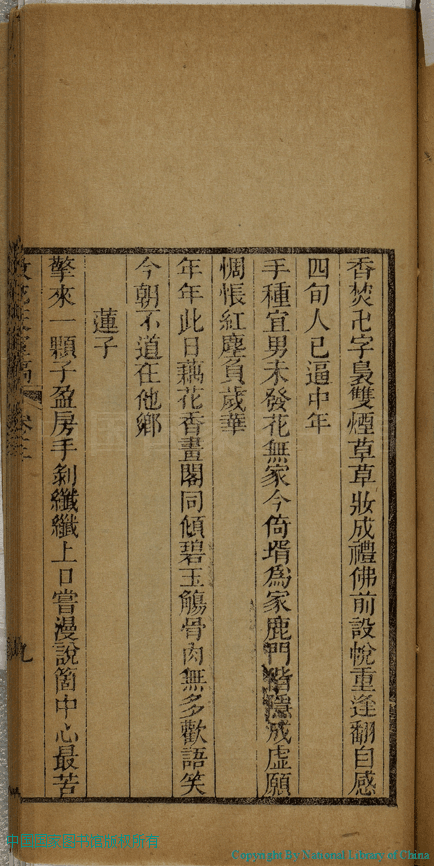 香焚卍字裊雙煙草草妝成禮佛前設帨重逢翻自感
四旬人已逼中年
手種宜男未發花無家今倚壻爲家鹿門偕隱成虛願
惆悵紅塵負歲華
年年此日藕花香畫閣同傾碧玉觴骨肉無多歡語笑
今朝不道在他鄉
蓮子
擎來一顆子盈房手剝纖纖上口嘗漫說箇中心最苦
卷三
九
Copyright By National Library of China